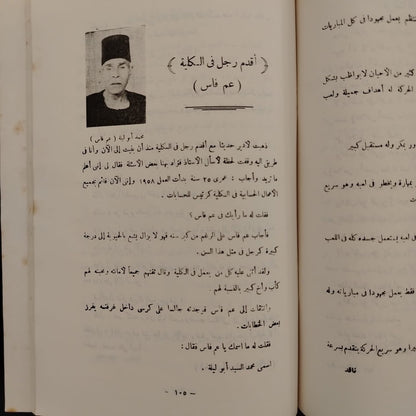 ﴿ أقدم رجل فى الكلية ﴾
( عم فاس )
محمد أبو ليلة ( عم فاس )
ذهبت لأدير حديثا مع أقدم رجل فى الكلية منذ أن بنيت إلى الآن وأنا فى
طريق اليه وقفت لحظة لأسأل الأستاذ فؤاد بهنا بعض الأسئلة فقال لى إنى أعلم
ما تريد وأجاب : عمرى ٢٥ سنة بدأت العمل ١٩٥٨ وإنى الآن قائم بجميع
الأعمال الحسابية فى الكلية كرئيس للحسابات .
فقلت له ما رأيك فى عم فاس ؟
فأجاب عم فاس على الرغم من كبر سنه فهو لا يزال يتمتع بالحيوية إلى درجة
كبيرة كرجل فى مثل هذا السن .
ولقد أثنى عليه كل من يعمل فى الكلية ونال ثقتهم جميعاً لأمانته ومحبته لهم
كأب وأخ كبير بالنسبة لهم
وانتقلت إلى عم فاس فوجدته جالسا على كرسى داخل غرفته يفرز
بعض الخطابات .
فقلت له ما اسمك يا عم فاس فقال :
اسمى محمد السيد أبو ليلة .
— ١٠٥ —
منتظم يعمل بمجهودا فى كل المباريات
كثير من الأحيان لا يواظب بشكل
الحركة له أهداف جميلة ولعب
بكر وله مستقبل كبير
بمهارة ويخطو فى لعبه وهو سريع
فى لعبه يستعمل جسده كله فى اللعب
فقط يعمل بمجهودا فى مبارياته وله
وهو سريع الحركة يتقدم بسرعة
ناقد